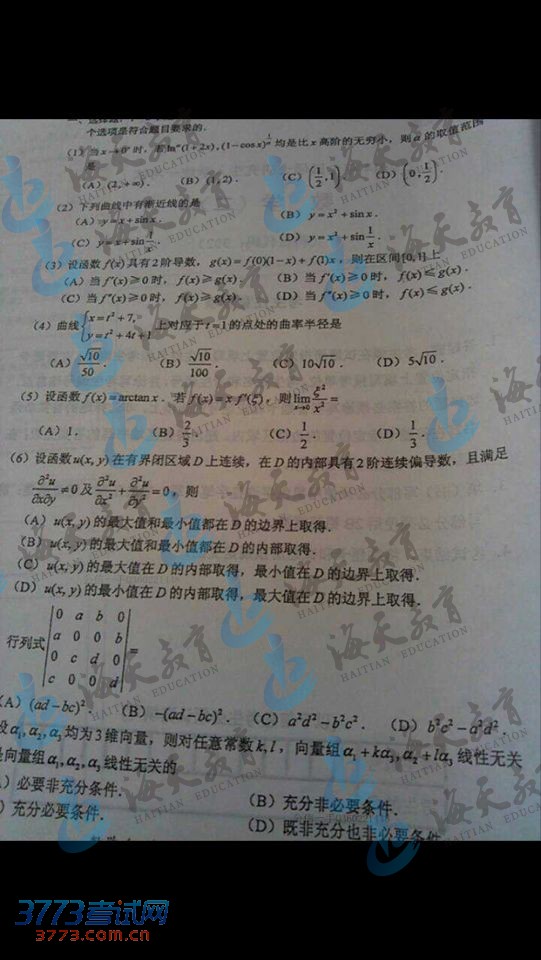 一、选择题:
个选项是符合题目要求的.
(1) 当x→0⁺时, 若lnᵅ(1+2x), (1-cosx)^{1/α} 均是比x高阶的无穷小, 则α的取值范围
是
(A) (2,+∞). (B) (1,2). (C) (1/2,1). (D) (0,1/2).
(2) 下列曲线中有渐近线的是
(A) y=x+sinx. (B) y=x²+sinx.
(C) y=x+sin1/x. (D) y=x²+sin1/x.
(3) 设函数f(x)具有2阶导数, g(x)=f(0)(1-x)+f(1)x, 则在区间[0,1]上
(A) 当f'(x)≥0时, f(x)≥g(x). (B) 当f'(x)≥0时, f(x)≤g(x).
(C) 当f″(x)≥0时, f(x)≥g(x). (D) 当f″(x)≥0时, f(x)≤g(x).
(4) 曲线{x=t²+7, y=t²+4t+1 上对应于t=1的点处的曲率半径是
(A) √10/50. (B) √10/100. (C) 10√10. (D) 5√10.
(5) 设函数f(x)=arctanx. 若f(x)=xf'(ξ), 则lim x→0 ξ²/x²=
(A) 1. (B) 2/3. (C) 1/2. (D) 1/3.
(6) 设函数u(x,y)在有界闭区域D上连续, 在D的内部具有2阶连续偏导数, 且满足
∂²u/∂x∂y≠0及∂²u/∂x²+∂²u/∂y²=0, 则
(A) u(x,y)的最大值和最小值都在D的边界上取得.
(B) u(x,y)的最大值和最小值都在D的内部取得.
(C) u(x,y)的最大值在D的内部取得, 最小值在D的边界上取得.
(D) u(x,y)的最小值在D的内部取得, 最大值在D的边界上取得.
0 a b 0
a 0 0 b
行列式 =
0 c d 0
c 0 0 d
(A) (ad-bc)². (B) -(ad-bc)². (C) a²d²-b²c². (D) b²c²-a²d².
设α₁,α₂,α₃均为3维向量, 则对任意常数k,l, 向量组α₁+kα₃,α₂+lα₃线性无关
是向量组α₁,α₂,α₃线性无关的
) 必要非充分条件. (B) 充分非必要条件.
) 充分必要条件. (D) 既非充分也非必要条件.
海天教育
HAITIAN EDUCATION
3773考试网
3773.com.cn